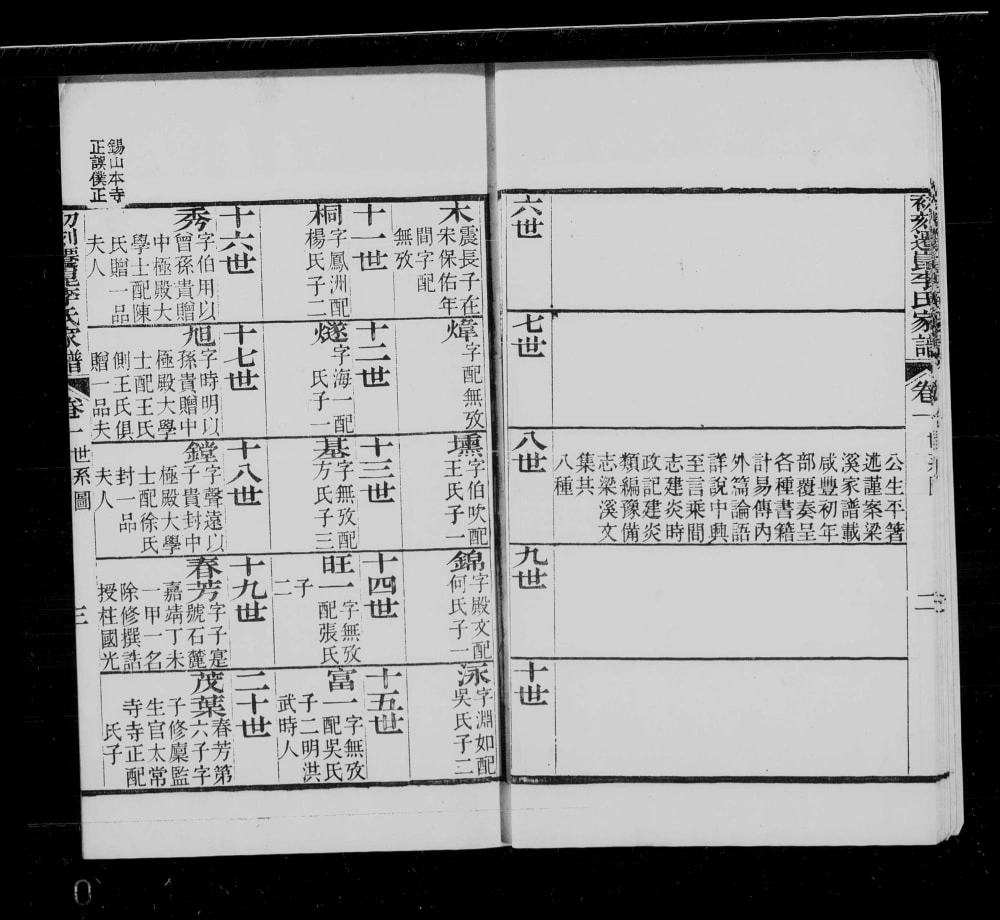 初刻遷昆李氏家譜
卷一
世系圖
二
六世
七世
八世
公生平著
述謹案梁
溪家譜載
咸豐初年
部覆奏呈
各種書籍
計易傳內
外篇論語
詳說中興
至言乘閒
志建炎時
政記建炎
類編豫備
志梁溪文
集共
八種
九世
十世
木
震長子在
宋保佑年
間字配
無攷
煒
字配無攷
壎
字伯吹配
王氏子一
錦
字殿文配
何氏子一
泳
字淵如配
吳氏子二
十一世
桐
字鳳洲配
楊氏子二
十二世
燧
字海一配
氏子一
十三世
基
字無攷配
方氏子三
十四世
旺一
字無攷
配張氏
子
二
十五世
富一
字無攷
配吳氏
子二明洪
武時人
十六世
秀
字伯用以
曾孫貴贈
中極殿大
學士配陳
氏贈一品
夫人
十七世
旭
字時明以
孫貴贈中
極殿大學
士配王氏
側王氏俱
贈一品夫
十八世
鏜
字聲遠以
子貴封中
極殿大學
士配徐氏
封一品
夫人
十九世
春芳
字子寔
號石麓
嘉靖丁未
一甲一名
除修撰誥
授柱國光
二十世
茂葉
春芳第
六子字
子修廩監
生官太常
寺寺正配
氏子
錫山本寺
正誤僕正
初刻遷昆李氏家譜
卷一
世系圖
三
0